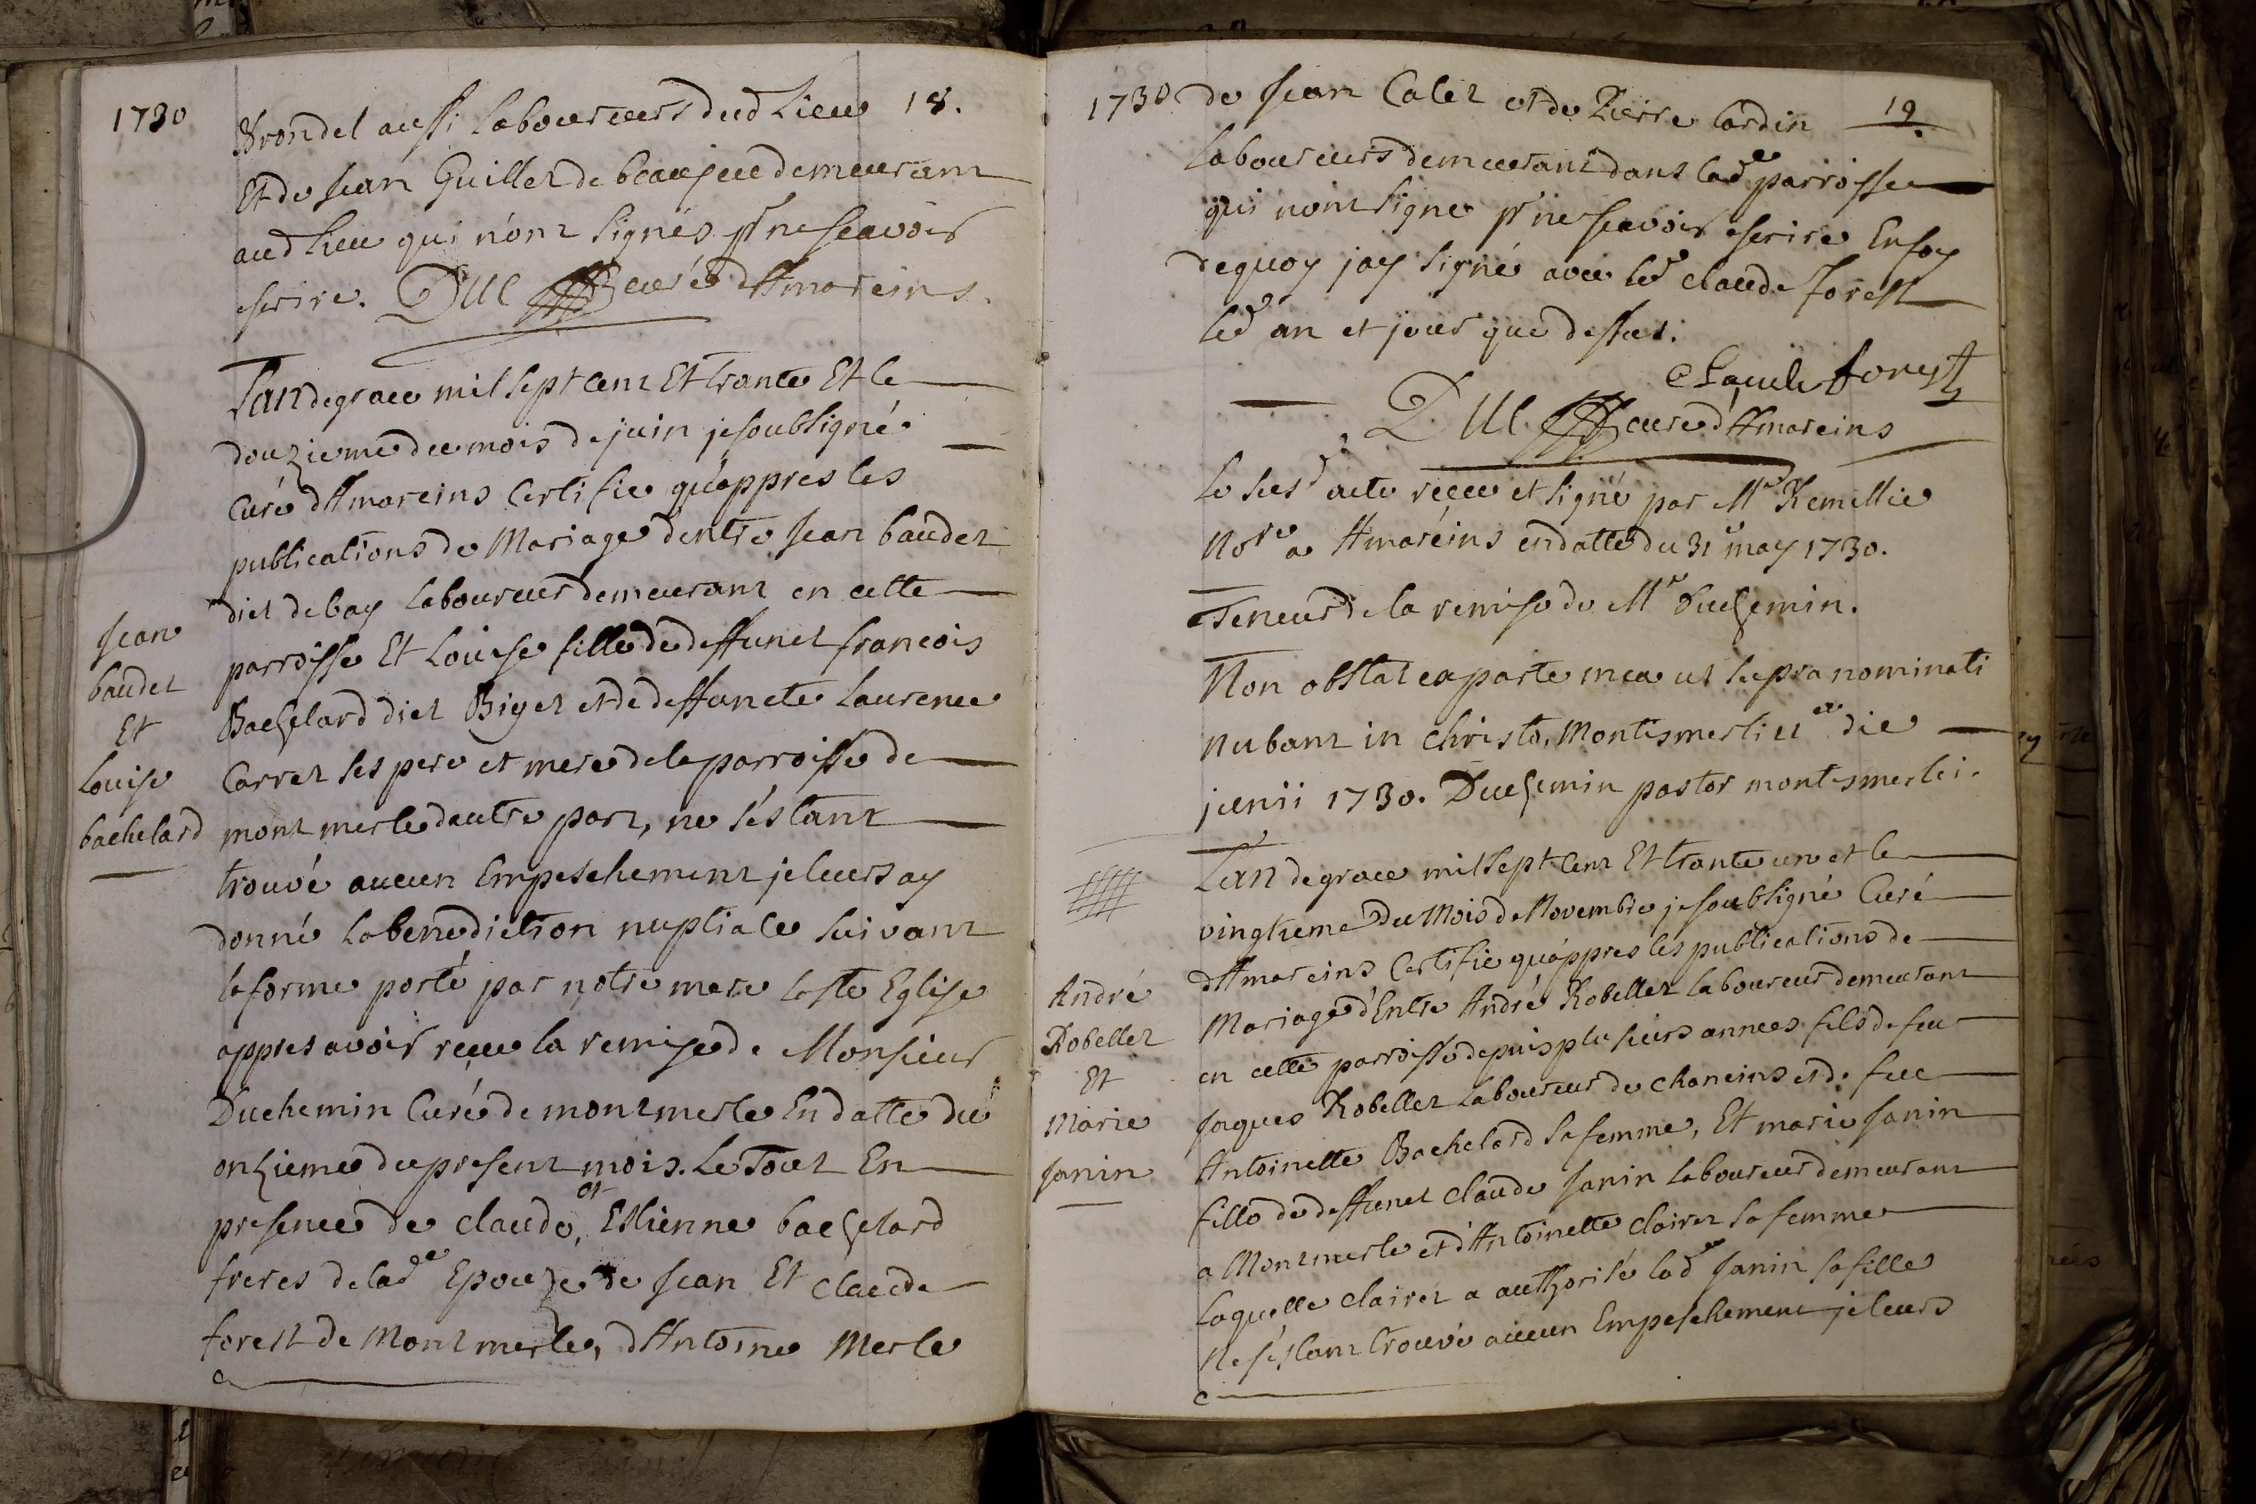 1730
18.
Brondel aussi laboureurs dud lieu
Et de Jean Guillet de beaujeu demeurant
aud lieu qui n'ont signés pr ne scavoir
escrire. DUC curé d'Amareins
L'an de grace mil sept cent Et trante Et le
douzieme du mois de juin je soubsigné
Curé d'Amareins Certifie qu'appres les
publications de Mariage d'entre Jean baudet
dict debay laboureur demeurant en cette
parroisse Et Louise fille de deffunct francois
Bachelard dict Biget et de deffuncte Laurence
Carret ses pere et mere de la parroisse de
mont merle d'autre part, ne s'éstant
trouvé aucun Empeschement je leurs ay
donné la benediction nuptiale suivant
la forme porté par notre mere la ste Eglise
appres avoir reçeu la remise de Monsieur
Duchemin Curé de montmerle En datte du
onzieme du present mois. Le Tout En
presence de claude, et Estienne bachelard
freres de lade Epouze de Jean Et claude
forest de Montmerle, d'Antoine Merle
Jean
baudet
Et
Louise
bachelard
1730
19.
de Jean Calet et de Pierre Cardin
laboureurs demeurant dans lade parroisse
qui n'ont signe pr ne scavoir escrire En foy
de quoy jay signé avec led claude forest
led an et jour que dessus.
Claude forest
DUC curé d'Amareins
Le susd acte reçeu et signé par Mr Remillie
Nore a Amaréins en datte du 31e may 1730.
Teneur de la remise de Mr Duchemin.
Non obstat ex parte mea ut supra nominati
nubant in Christo, Montismerli 11a die
junii 1730. Duchemin pastor montismerlei.
L'an de grace mil sept cent Et trante un et le
vingtieme du Mois de Novembre je soubsigné Curé
d'Amareins Certifie qu'áppres les publications de
Mariage d'Entre André Robellet laboureur demeurant
en cette parroisse depuis plusieurs annees fils de feu
Jaques Robellet laboureur de chaneins et de feue
Antoinette Bachelard sa femme, Et marie Janin
fille de deffunct claude Janin laboureur demeurant
a Montmerle et d'Antoinette clairet sa femme
laquelle clairet a authorisé lade Janin sa fille
ne s'éstant trouvé aucun Empeschement je leurs
André
Robellet
Et
Marie
Janin